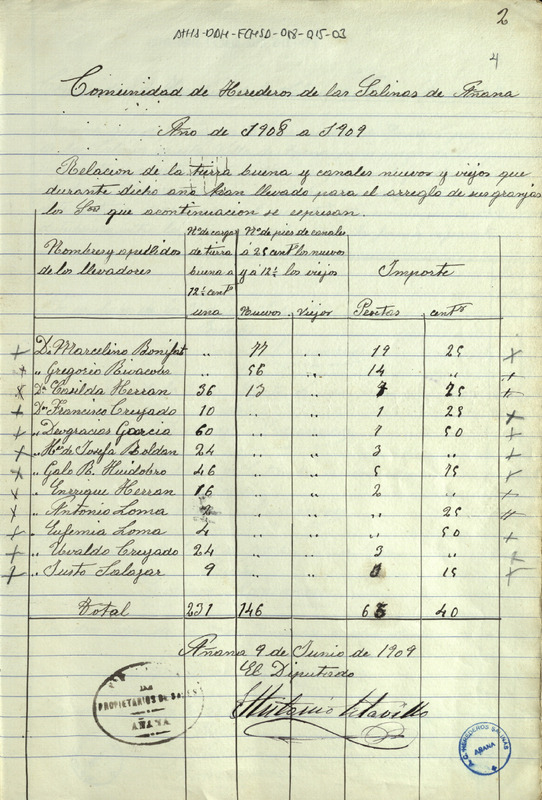 2
AHS-DDH-FCHSA-018-015-03
4
Comunidad de Herederos de las Salinas de Añana
Año de 1908 a 1909
Relacion de la tierra buena y canales nuevos y viejos que
durante dicho año han llevado para el arreglo de sus granjas
los Sres que acontinuacion se espresan.
Nombres y apellidos de los llevadores Nº de cargas de tierra buena a 12½ centº una Nº de pies de canales á 25 centº los nuevos y á 12½ los viejos Importe
Nuevos Viejos Pesetas centº
Dn Marcelino Bonifat " 77 " 19 25
" Gregorio 56 " 14 "
Dª Casilda Herran 36 13 " 7 75
Dn Francisco Creyado 10 " " 1 25
" Deogracias Garcia 60 " " 7 50
" Hª de Josefa Roldan 24 " " 3 "
" Galo R. Huidobro 46 " " 5 75
" Enrrique Herran 16 " " 2 "
" Antonio Loma 2 " " " 25
" Eufemia Loma 4 " " " 50
" Uvaldo Creyado 24 " " 3 "
" Justo Salazar 9 " " 1 15
Total 231 146 65 40
Añana 9 de Junio de 1909
El Diputado
Antonio
DE
PROPIETARIOS DE SALES
AÑANA
HEREDEROS SALINAS
AÑANA